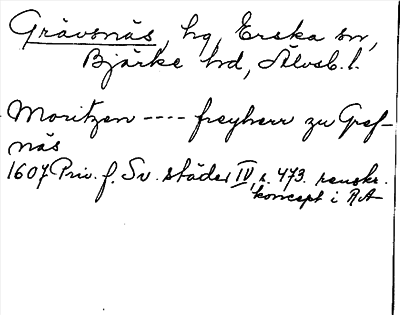 Grävsnäs, hg, Erska sn,
Bjärke hd, Älvsb. l.
Moritzen ---- freyherr zu Gref-
näs
1607 Priv. f. Sv. städer IV, s. 473. renskr.
koncept i RA